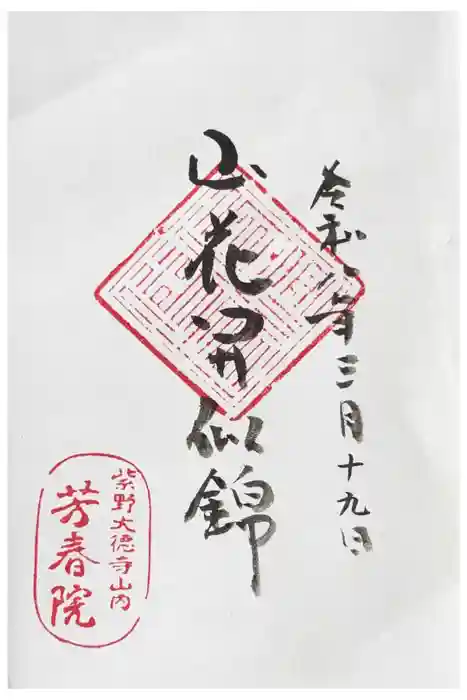 令和八年三月十九日
山花開似錦
紫野大徳寺山内
芳春院